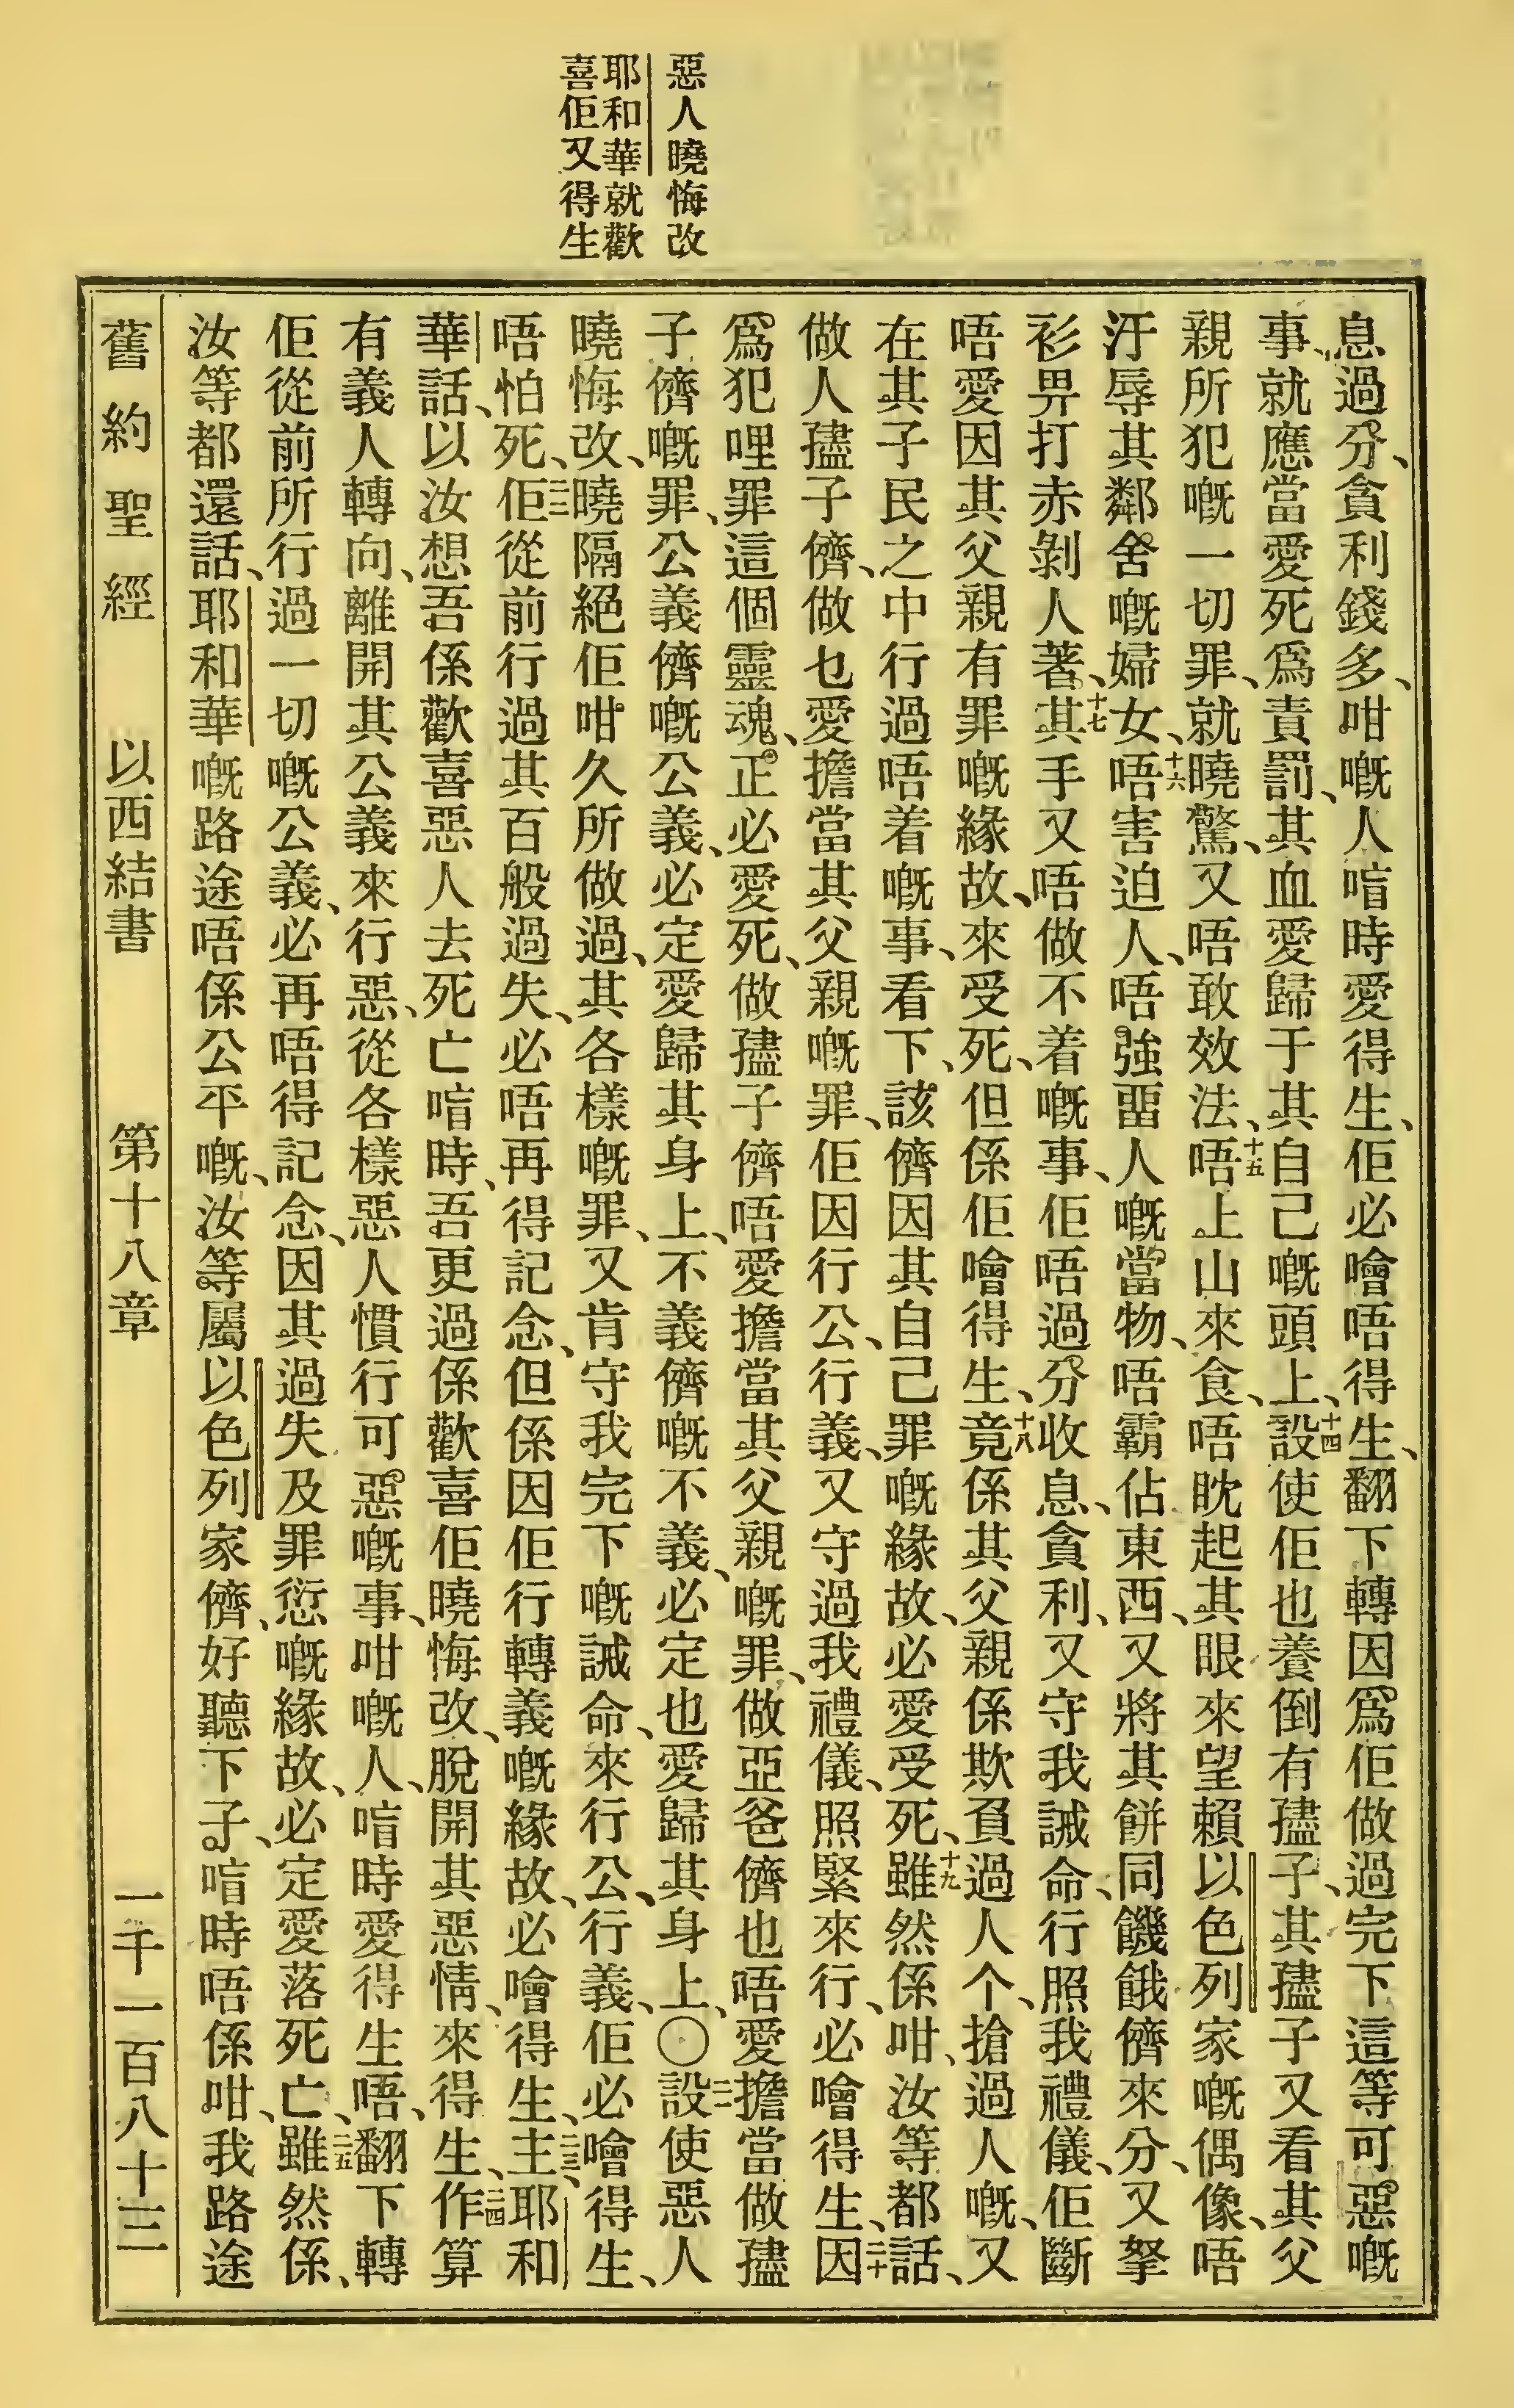 惡人曉悔改
耶和華就歡
喜佢又得生
息過分、貪利錢多、咁嘅人㫮時愛得生、佢必噲唔得生、翻下轉因爲佢做過完下這等可惡嘅
事、就應當愛死爲責罰、其血愛歸于其自己嘅頭上、十四設使佢也養倒有㜽子、其㜽子又看其父
親所犯嘅一切罪、就曉驚、又唔敢效法、十五唔上山來食、唔眈起其眼來望賴以色列家嘅偶像、唔
汙辱其鄰舍嘅婦女、十六唔害迫人、唔強畱人嘅當物、唔霸佔東西、又將其餅同饑餓儕來分、又拏
衫畀打赤剝人著、十七其手又唔做不着嘅事、佢唔過分收息、貪利、又守我誡命、行照我禮儀、佢斷
唔愛因其父親有罪嘅緣故、來受死、但係佢噲得生、十八竟係其父親係欺負過人个、搶過人嘅、又
在其子民之中行過唔着嘅事、看下、該儕因其自己罪嘅緣故、必愛受死、十九雖然係咁、汝等都話、
做人㜽子儕、做乜愛擔當其父親嘅罪、佢因行公、行義、又守過我禮儀、照緊來行、必噲得生、二十因
爲犯哩罪這個靈魂、正必愛死、做㜽子儕唔愛擔當其父親嘅罪、做亞爸儕也唔愛擔當做㜽
子儕嘅罪、公義儕嘅公義、必定愛歸其身上、不義儕嘅不義、必定也愛歸其身上、〇二一設使惡人
曉悔改、曉隔絕佢咁久所做過、其各樣嘅罪、又肯守我完下嘅誡命、來行公、行義、佢必噲得生、
唔怕死、二二佢從前行過其百般過失、必唔再得記念、但係因佢行轉義嘅緣故、必噲得生、二三主耶和
華話、以汝想吾係歡喜惡人去死亡㫮時、吾更過係歡喜佢曉悔改、脫開其惡情、來得生、二四作算
有義人轉向、離開其公義來行惡、從各樣惡人慣行可惡嘅事、咁嘅人、㫮時愛得生唔、翻下轉
佢從前所行過一切嘅公義、必再唔得記念、因其過失及罪愆嘅緣故、必定愛落死亡、二五雖然係、
汝等都還話、耶和華嘅路途唔係公平嘅、汝等屬以色列家儕、好聽下子、㫮時唔係咁、我路途
舊約聖經　以西結書　第十八章　一千一百八十三